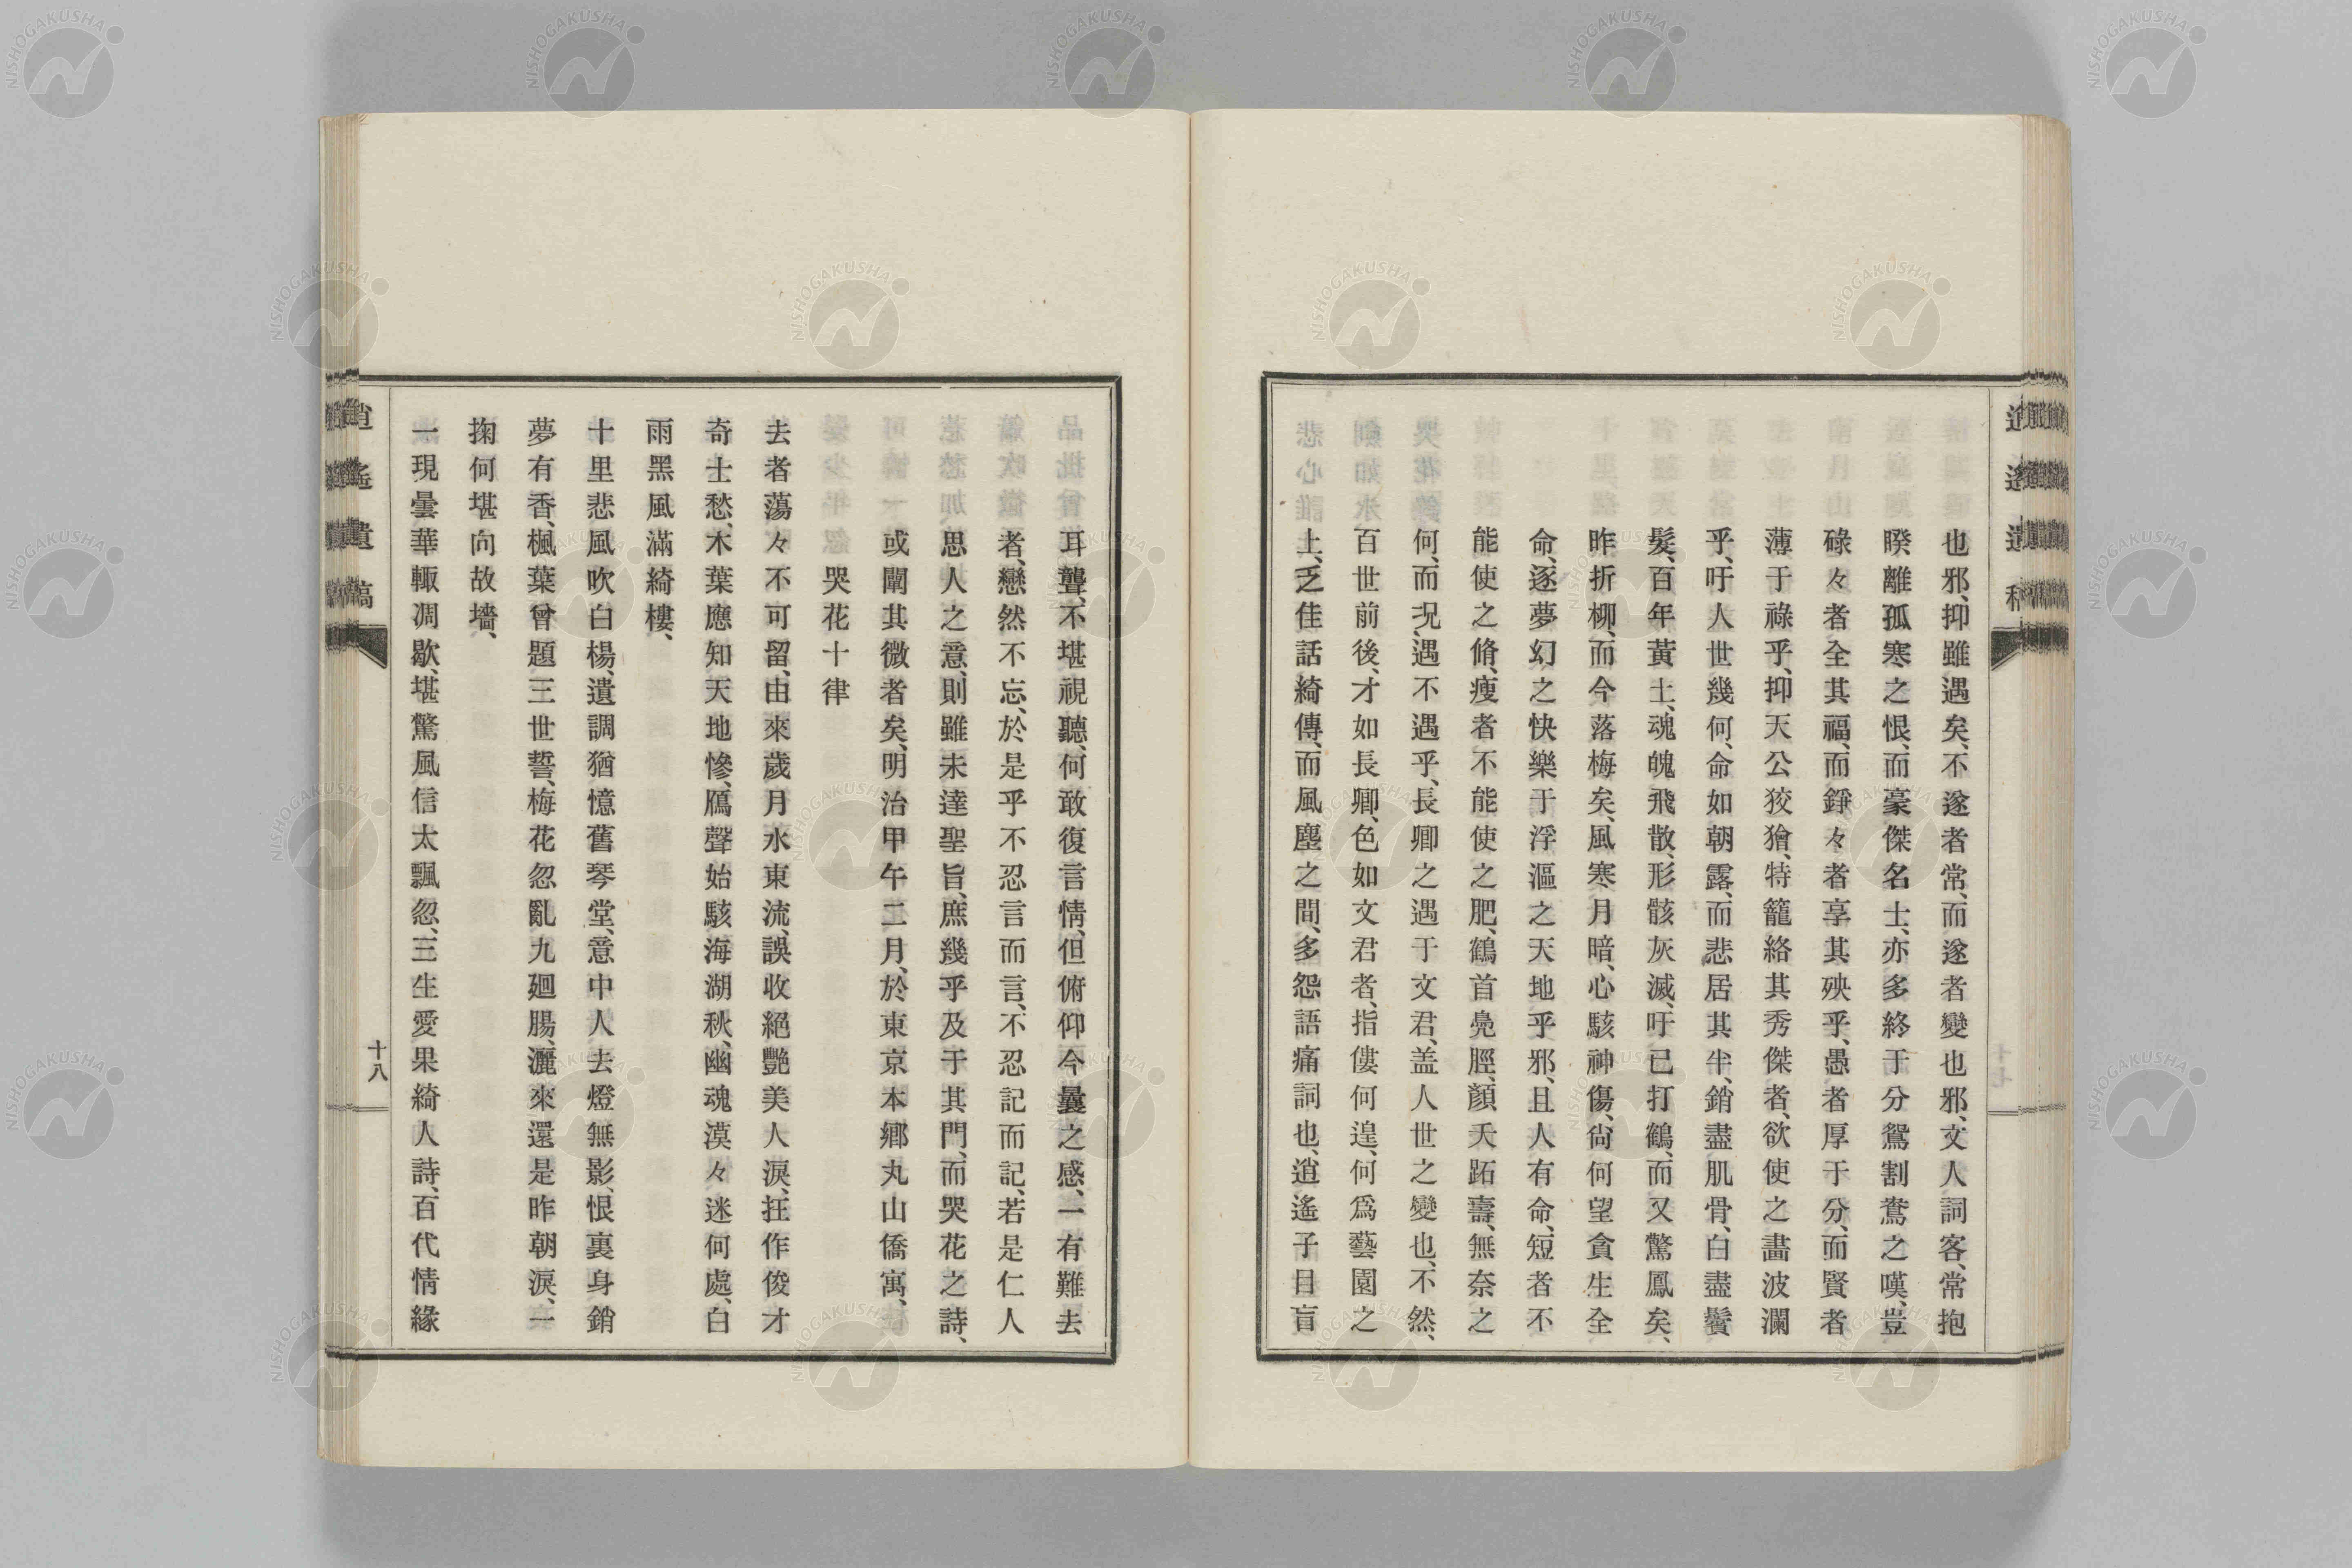 也邪、抑雖遇矣、不遂者常、而遂者變也邪、文人詞客、常抱
睽離孤寒之恨、而豪傑名士、亦多終于分鴛割鴦之嘆、豈
碌々者全其福、而錚々者享其殃乎、愚者厚于分、而賢者
薄于祿乎、抑天公狡獪、特籠絡其秀傑者、欲使之畵波瀾
乎、吁人世幾何、命如朝露、而悲居其半、銷盡肌骨、白盡鬢
髮、百年黃土、魂魄飛散、形骸灰滅、吁已打鶴、而又驚鳳矣、
昨折柳、而今落梅矣、風寒月暗、心駭神傷、尙何望貪生全
命、逐夢幻之快樂于浮漚之天地乎邪、且人有命、短者不
能使之脩、瘦者不能使之肥、鶴首鳧脛、顏夭跖壽、無奈之
何、而况遇不遇乎、長卿之遇于文君、盖人世之變也、不然、
百世前後、才如長卿、色如文君者、指僂何遑、何爲藝園之
上、乏佳話綺傳、而風塵之間、多怨語痛詞也、逍遙子目盲
耳聾、不堪視聽、何敢復言情、但俯仰今曩之感、一有難去
者、戀然不忘、於是乎不忍言而言、不忍記而記、若是仁人
思人之意、則雖未達聖旨、庶幾乎及于其門、而哭花之詩、
或闡其微者矣、明治甲午二月、於東京本鄉丸山僑寓、
哭花十律
去者蕩々不可留、由來歲月水東流、誤收絕艷美人淚、抂作俊才
奇士愁、木葉應知天地慘、鴈聲始駭海湖秋、幽魂漠々迷何處、白
雨黑風滿綺樓、
十里悲風吹白楊、遺調猶憶舊琴堂、意中人去燈無影、恨裏身銷
夢有香、楓葉曾題三世誓、梅花忽亂九廻腸、灑來還是昨朝淚、一
掬何堪向故墻、
一現曇華輙凋歇、堪驚風信太飄忽、三生愛果綺人詩、百代情緣
逍遙遺稿
十八